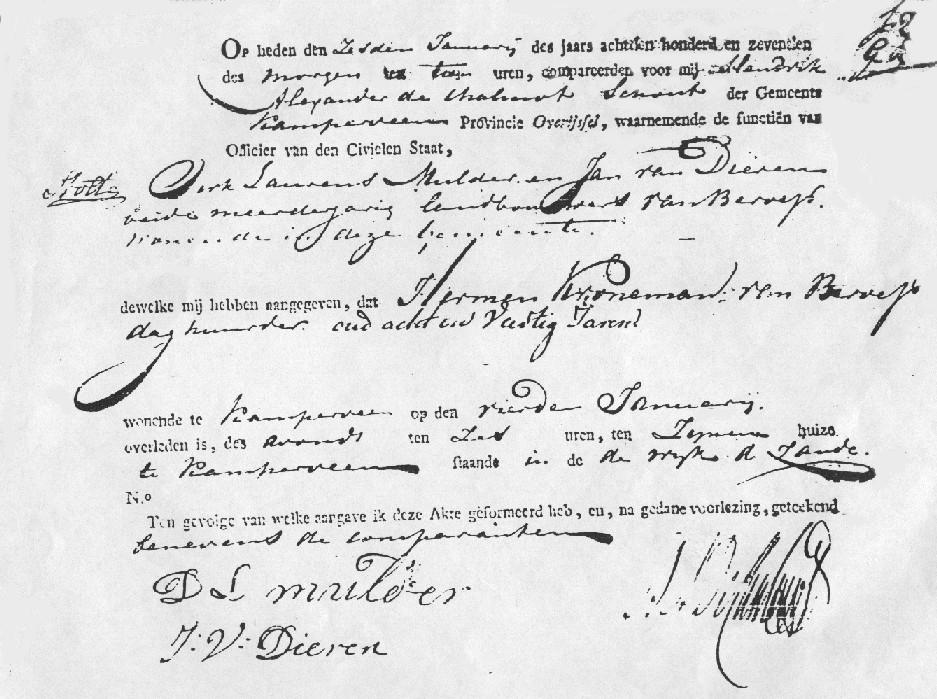 Op heden den Zesden Januarij des jaars achttien honderd en zeventien
des morgen ten tien uren, compareerden voor mij Hendrik
Alexander de Chalmot Schout der Gemeente
Kamperveen Provincie Overijssel, waarnemende de functiën van
Officier van den Civielen Staat,
Dirk Laurens Mulder en Jan van Dieren
beide meerderjarig landbouwers van Beroep.
wonende in deze Gemeente.
dewelke mij hebben aangegeven, dat Hermen Kroneman van Beroep
daghuurder oud acht en Vestig Jaren
wonende te Kamperveen op den vierden Januarij.
overleden is, des avonds ten Zes uren, ten Zijnen huize
te Kamperveen staande in de de wijk d Zande.
N.o
Ten gevolge van welke aangave ik deze Akte geformeerd heb, en, na gedane voorlezing, geteekend
benevens de comparanten
D L mulder
J: V: Dieren